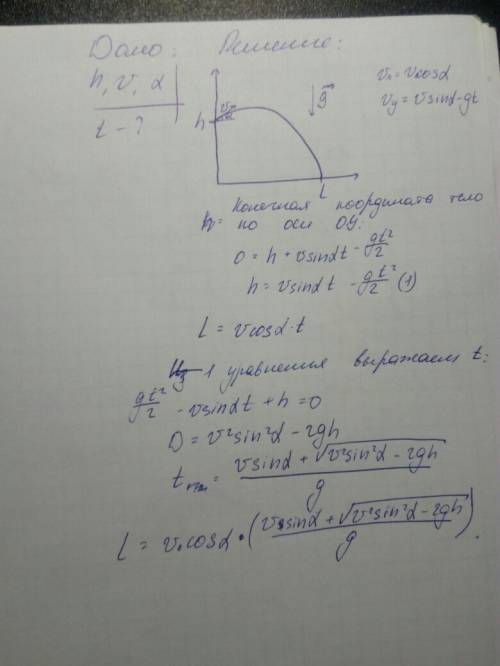 Дано: Решение:
h, v, α
t - ?
vₓ = vcosα
v_y = vsinα - gt
h
g⃗
L
Конечная координата тело
по оси OY:
0 = h + vsinαt - gt²/2
h = vsinαt - gt²/2 (1)
L = vcosα·t
Из 1 уравнения выражаем t:
gt²/2 - vsinαt + h = 0
D = v²sin²α - 2gh
t = (vsinα + √(v²sin²α - 2gh))/g
L = v₀cosα · ((vsinα + √(v²sin²α - 2gh))/g).